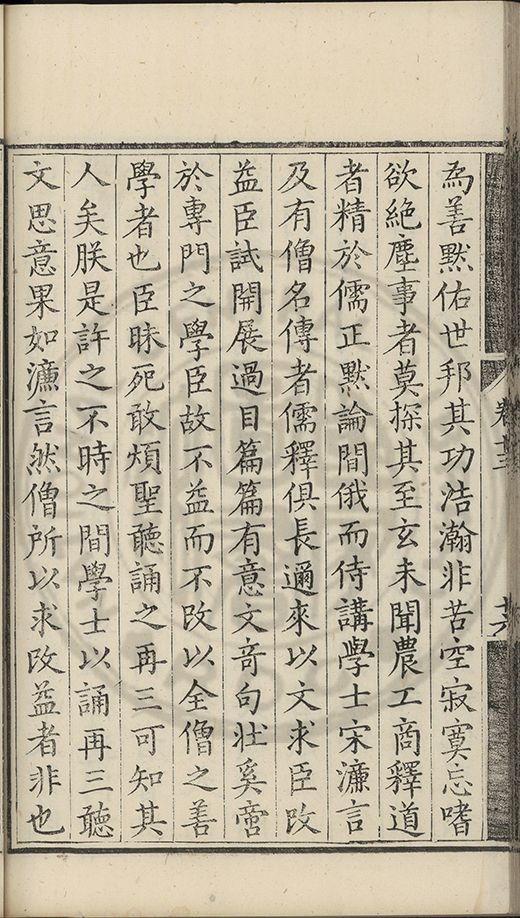 為善黙佑世邦其功浩瀚非苦空寂寞忘嗜
欲絶塵事者莫探其至玄未聞農工商釋道
者精於儒正黙論間俄而侍講學士宋濂言
及有僧名傅者儒釋俱長邇來以文求臣改
益臣試開展過目篇篇有意文竒句壯奚啻
於專門之學臣故不益而不改以全僧之善
學者也臣昧死敢煩聖聽誦之再三可知其
人矣朕是許之不時之間學士以誦再三聽
文思意果如濂言然僧所以求改益者非也
卷十三
十六